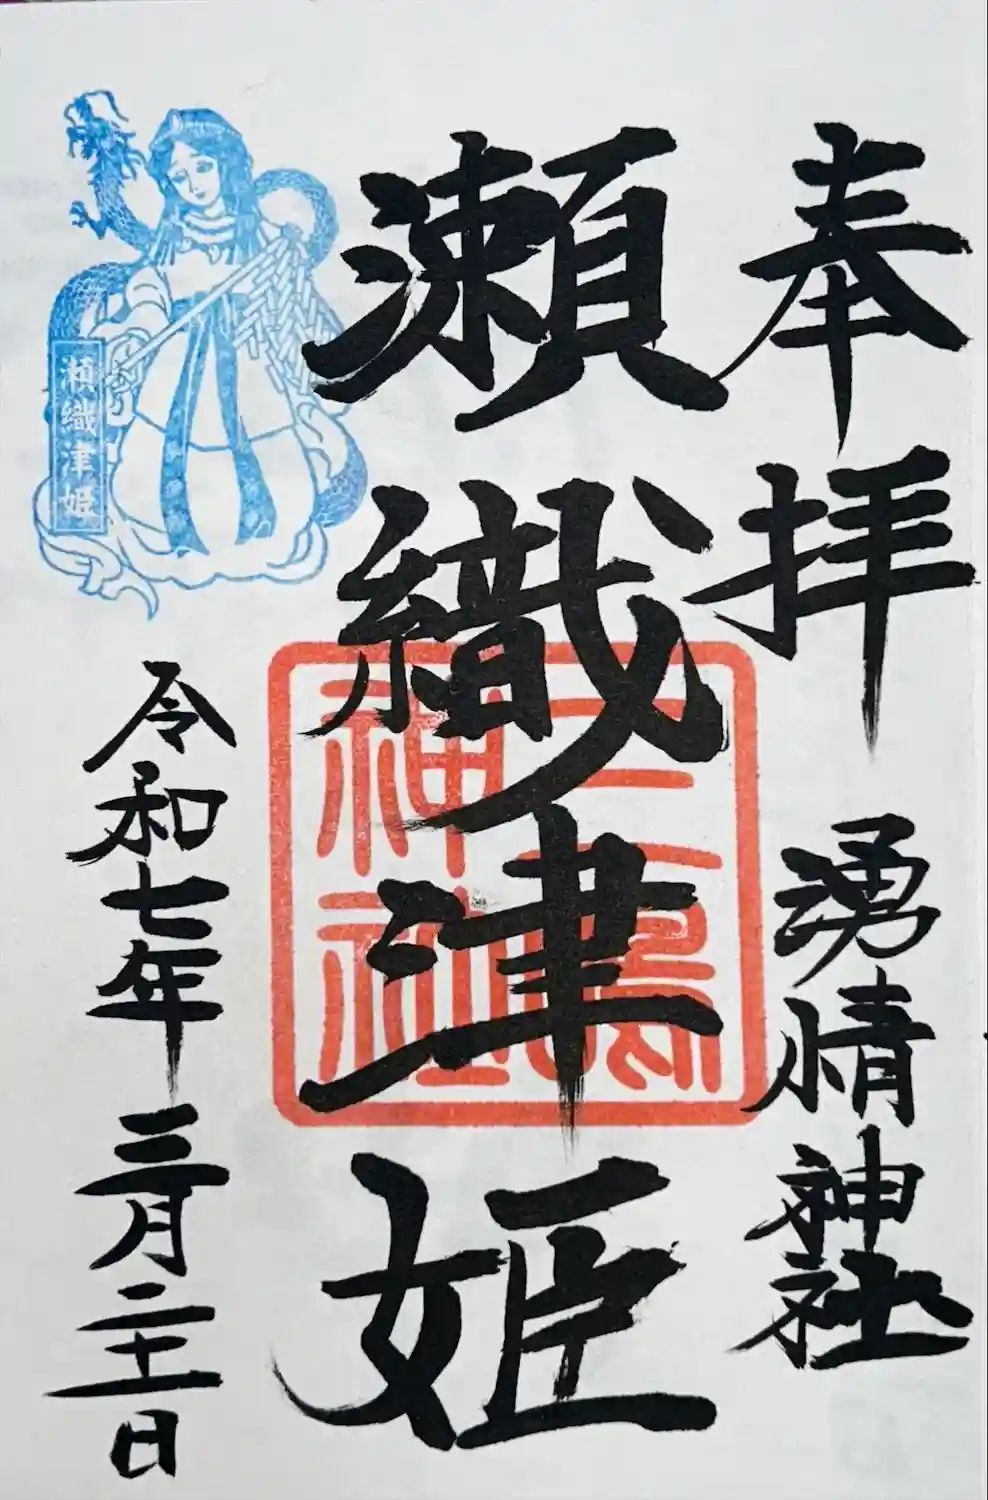 奉拝
湧情神社
瀬織津姫
三嶋
神社
瀬織津姫
令和七年三月二十一日